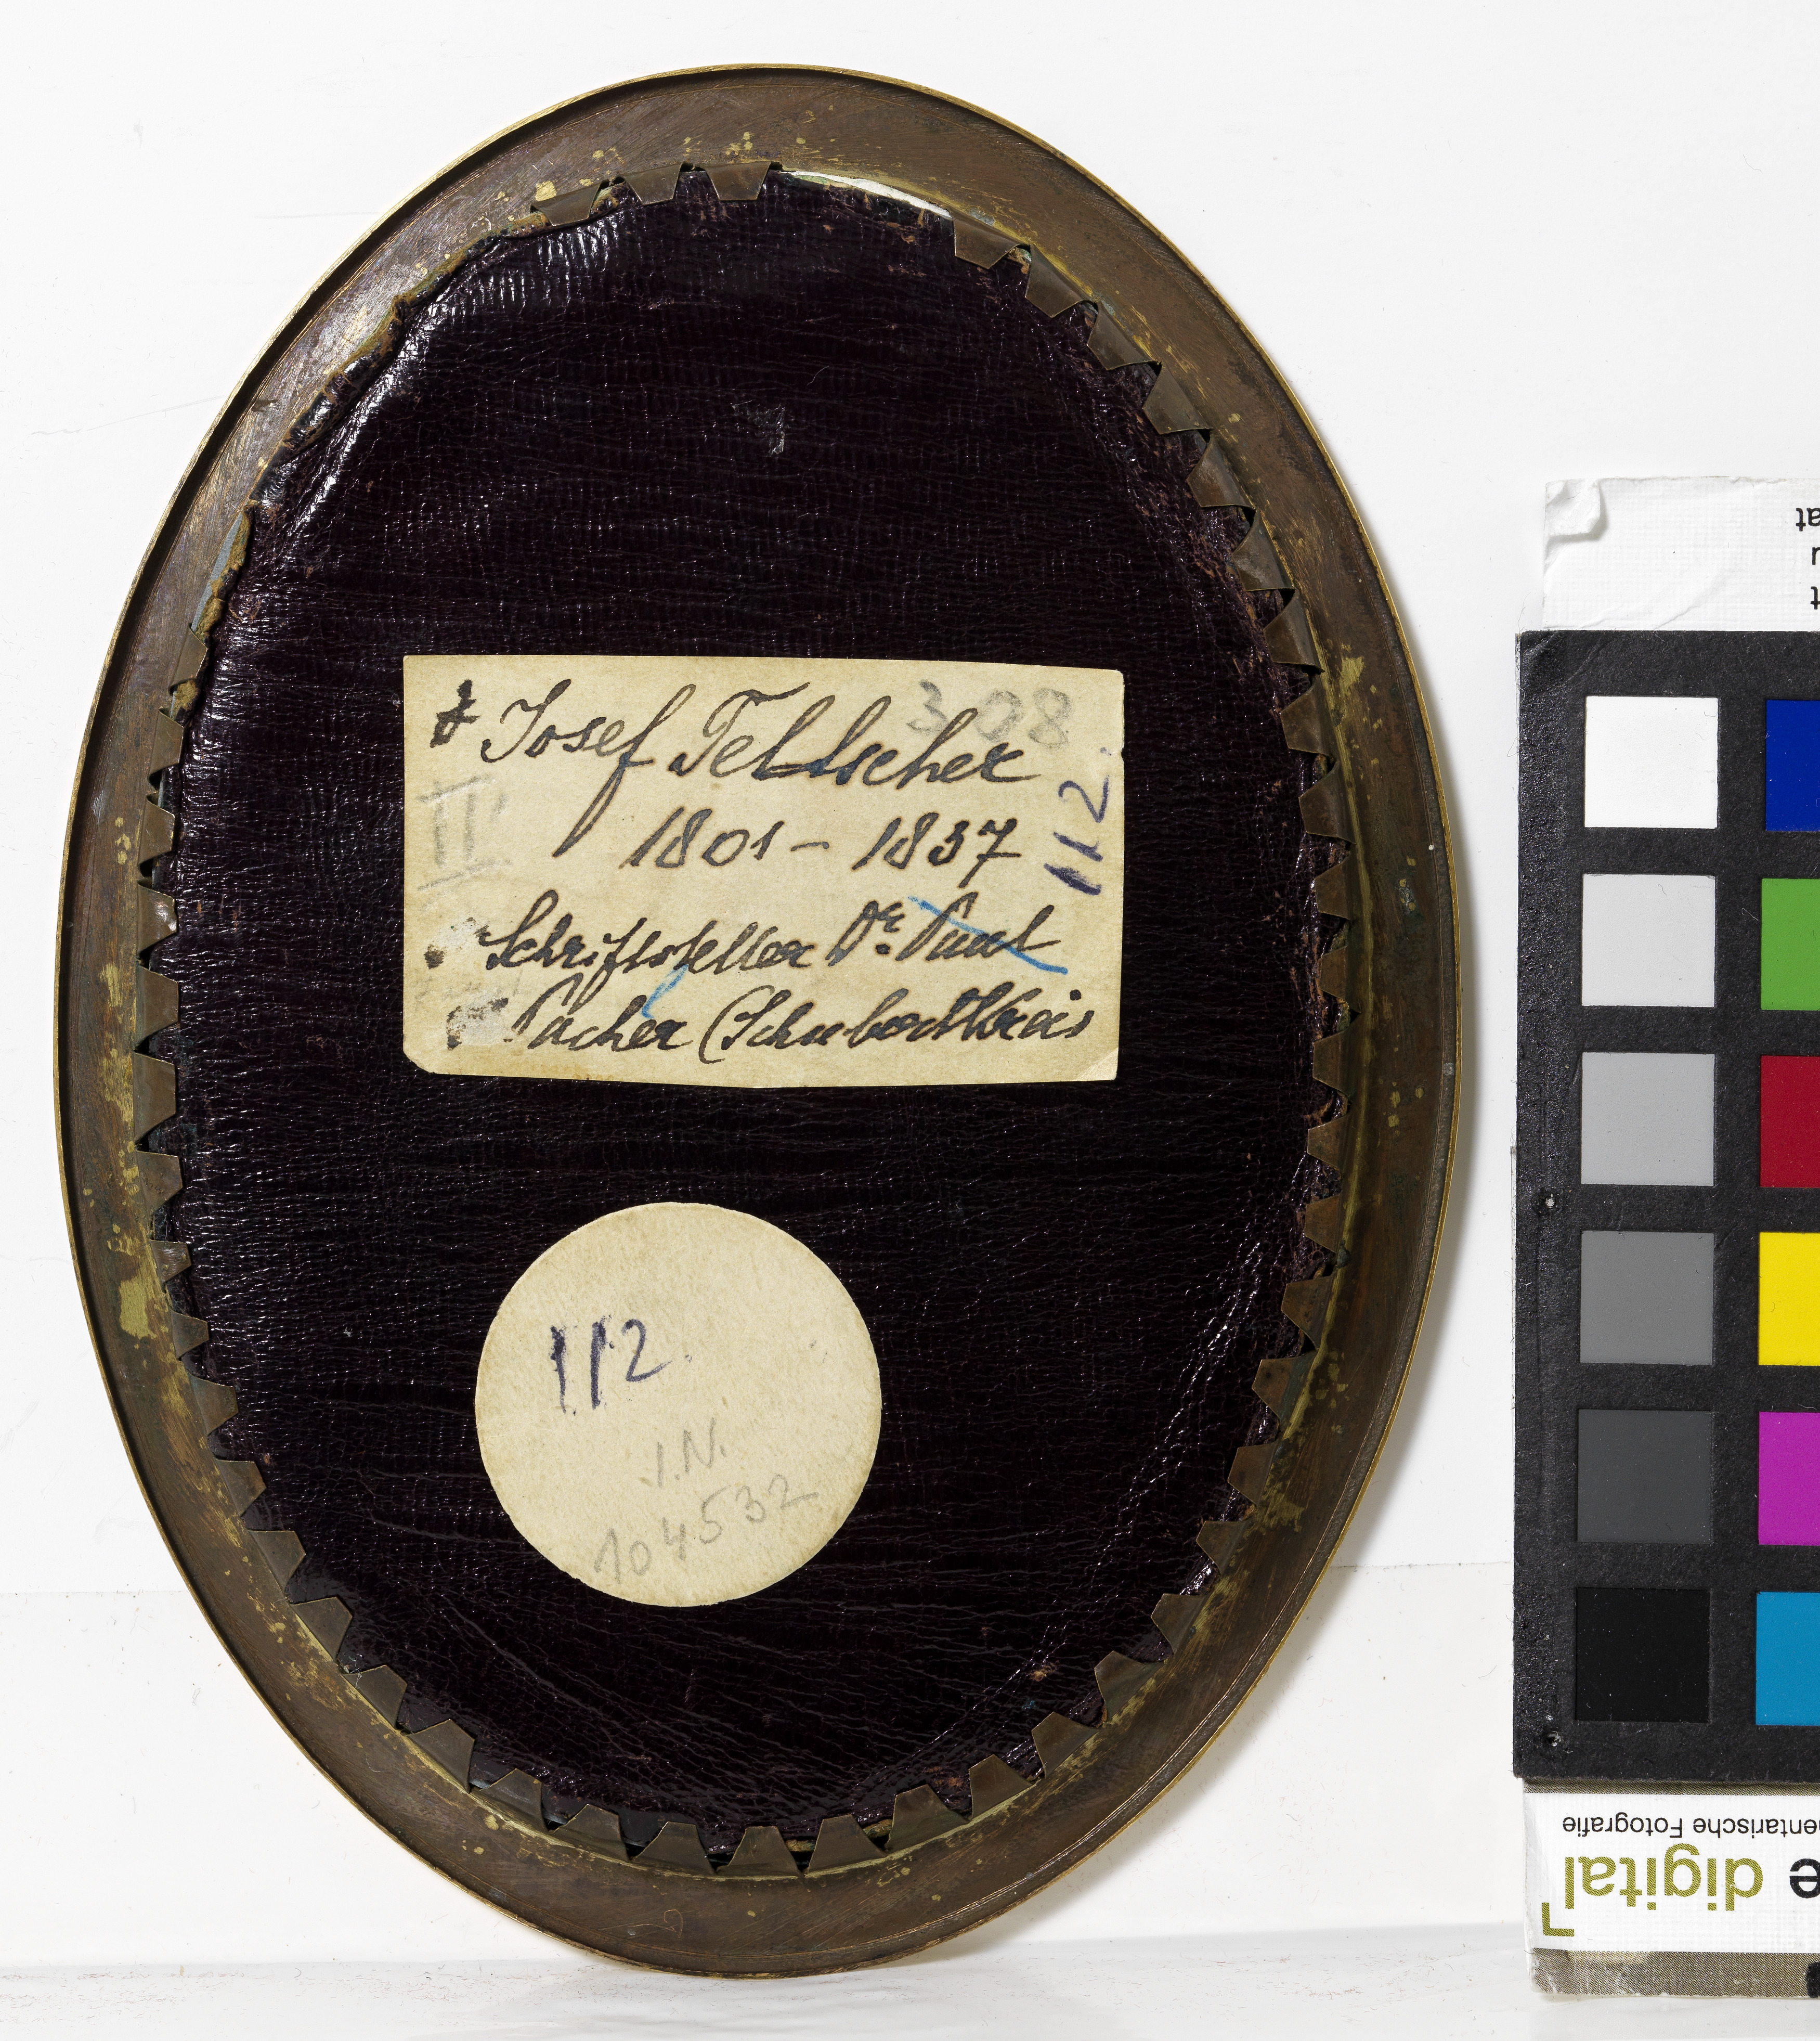 Josef Teltscher
308
1801 - 1837
112.
II
Schriftsteller Dr. Paul
Pacher (Schubertkreis
112.
I.N.
104532
entarische Fotografie
e digital